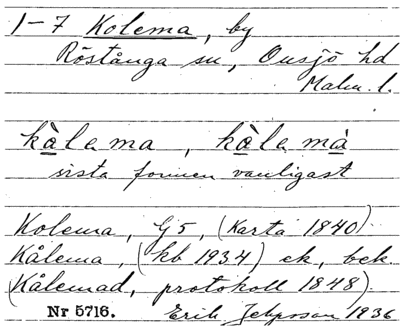 1-7 Kolema, by
Röstånga sn, Onsjö hd
Malm. l.
kàlema, kàlemà
sista formen vanligast
Kolema, Gj5, (Karta 1840)
Kålema, (kb 1934) ek, bek
(Kålemad, protokoll 1848)
Nr 5716. Erik Jeppsson 1936